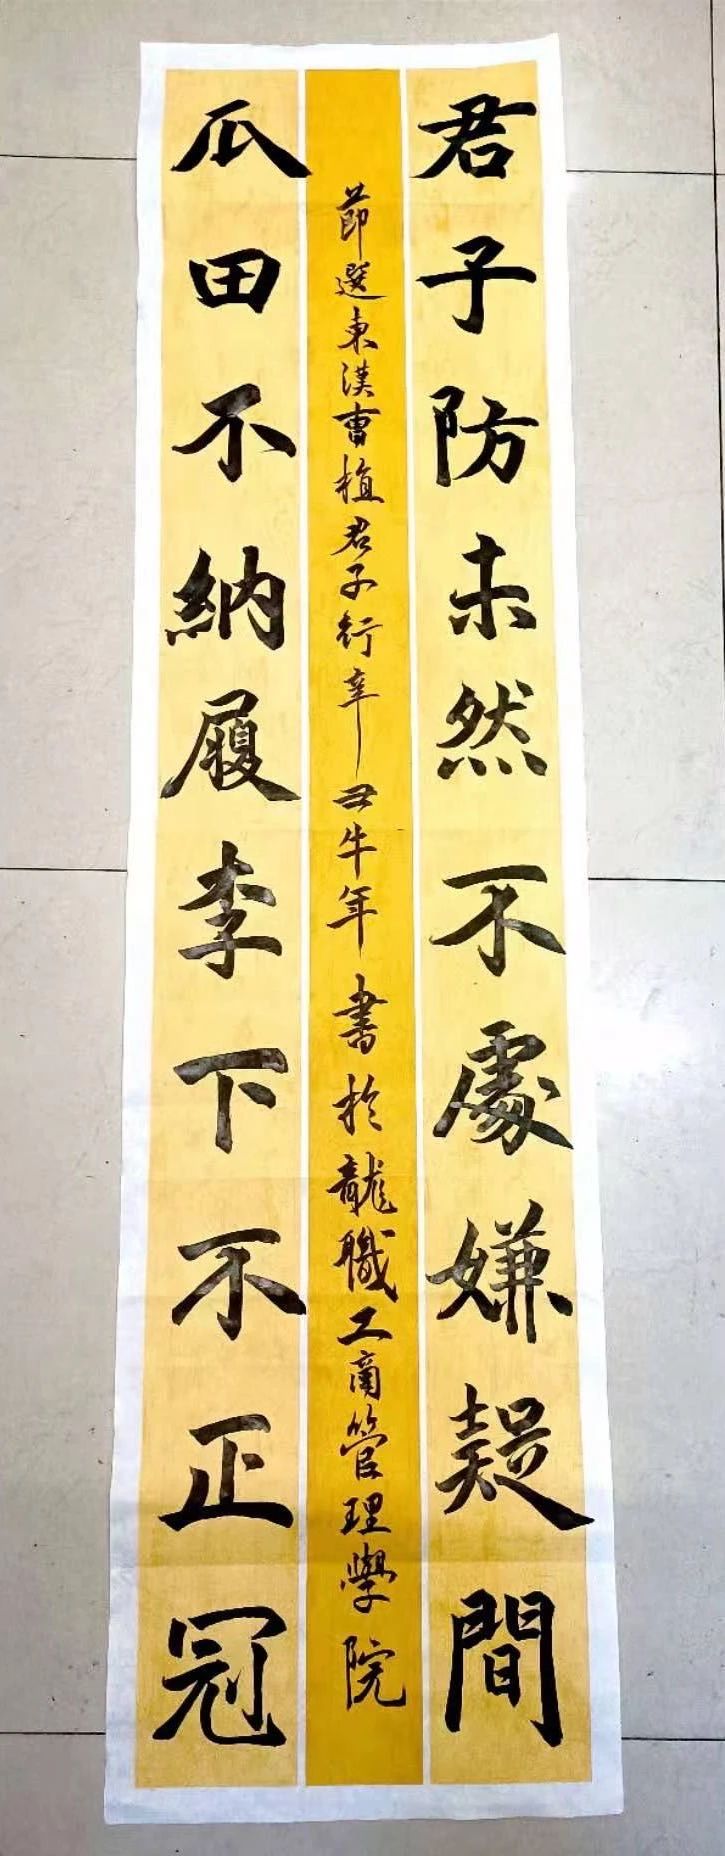 君子防未然不處嫌疑間
瓜田不納履李下不正冠
節選東漢曹植君子行辛丑牛年書於龍職工商管理學院